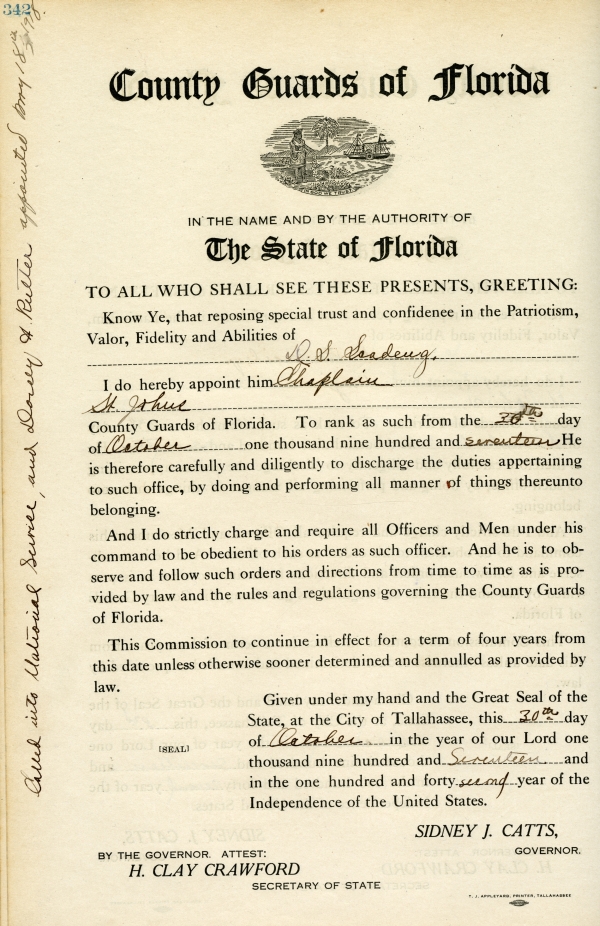 342
County Guards of Florida
IN THE NAME AND BY THE AUTHORITY OF
The State of Florida
TO ALL WHO SHALL SEE THESE PRESENTS, GREETING:
Know Ye, that reposing special trust and confidenee in the Patriotism,
Valor, Fidelity and Abilities of
D. S.
I do hereby appoint him Chaplain
St Johns
County Guards of Florida. To rank as such from the 30th day
of October one thousand nine hundred and seventeen He
is therefore carefully and diligently to discharge the duties appertaining
to such office, by doing and performing all manner of things thereunto
belonging.
And I do strictly charge and require all Officers and Men under his
command to be obedient to his orders as such officer. And he is to ob-
serve and follow such orders and directions from time to time as is pro-
vided by law and the rules and regulations governing the County Guards
of Florida.
This Commission to continue in effect for a term of four years from
this date unless otherwise sooner determined and annulled as provided by
law.
Given under my hand and the Great Seal of the
State, at the City of Tallahassee, this 30th day
of October in the year of our Lord one
thousand nine hundred and Seventeen and
in the one hundred and forty second year of the
Independence of the United States.
[SEAL]
SIDNEY J. CATTS,
GOVERNOR.
BY THE GOVERNOR. ATTEST:
H. CLAY CRAWFORD
SECRETARY OF STATE
T. J. APPLEYARD, PRINTER, TALLAHASSEE
Called into National Service, and appointed May 18th